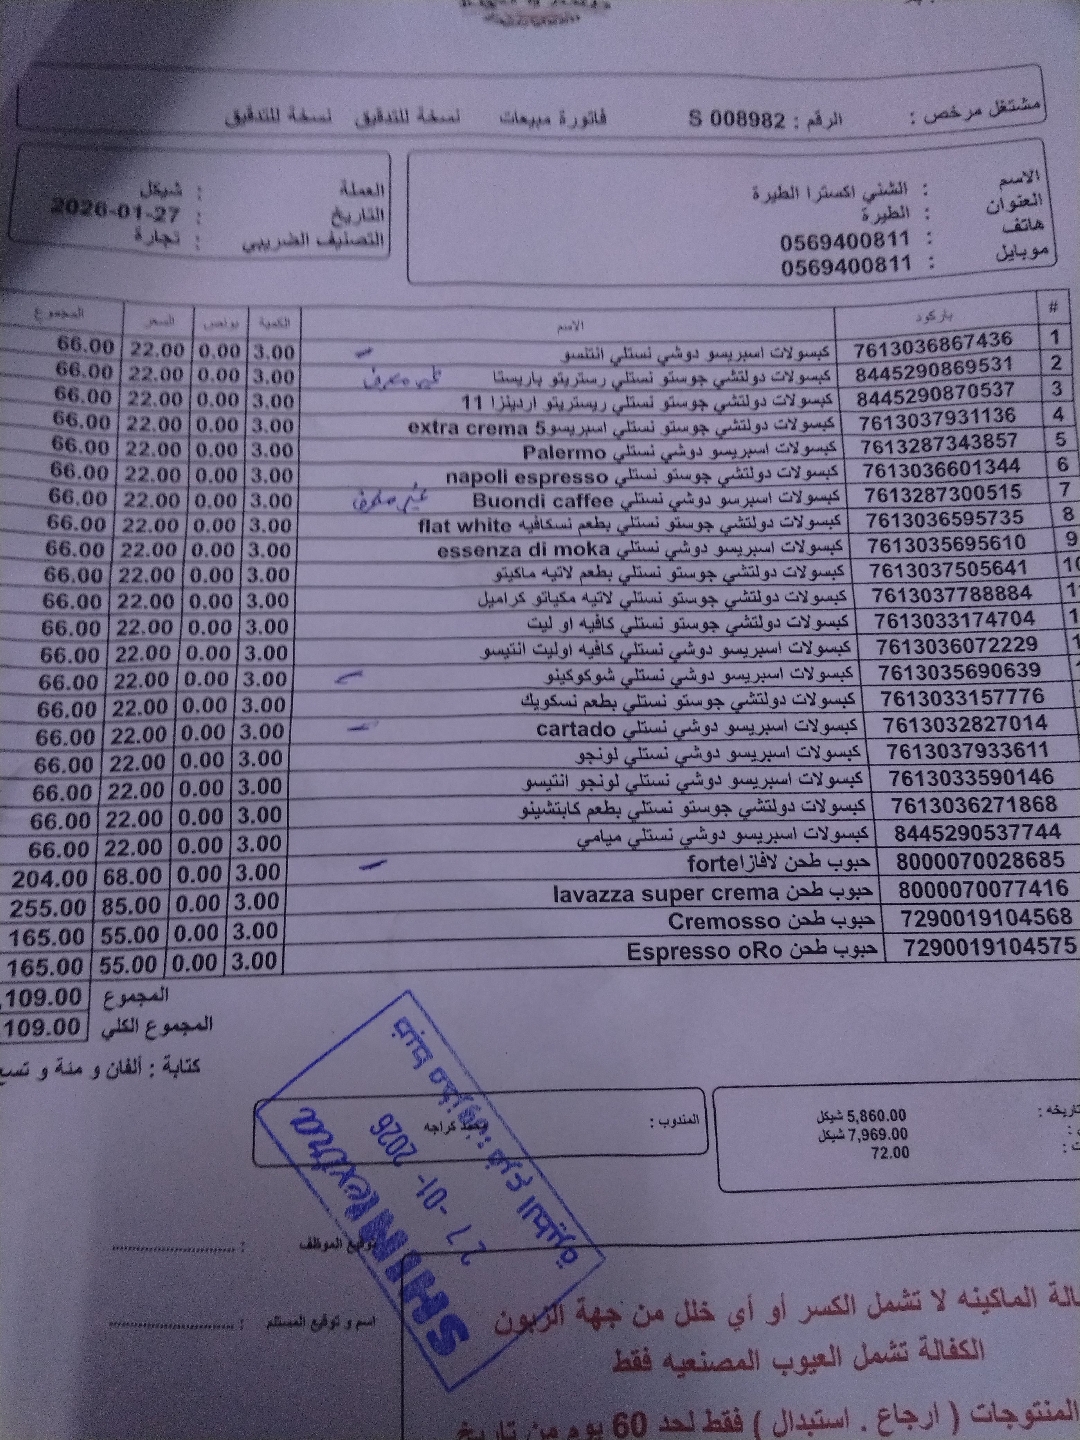 مشتغل مرخص : الرقم : S 008982 فاتورة مبيعات نسخة للتدقيق نسخة للتدقيق
الاسم : الشني اكسترا الطيرة
العنوان : الطيرة
هاتف : 0569400811
موبايل : 0569400811
العملة : شيكل
التاريخ : 2026-01-27
التصنيف الضريبي : تجارة
# باركود الاسم الكمية بونص السعر المجموع
1 7613036867436 كبسولات اسبريسو دوشي نستلي انتنسو 3.00 0.00 22.00 66.00
2 8445290869531 كبسولات دولتشي جوستو نستلي رستريتو باريستا غير معرف 3.00 0.00 22.00 66.00
3 8445290870537 كبسولات دولتشي جوستو نستلي ريستريتو اردينزا 11 3.00 0.00 22.00 66.00
4 7613037931136 كبسولات دولتشي جوستو نستلي اسبريسو5 extra crema 3.00 0.00 22.00 66.00
5 7613287343857 كبسولات اسبريسو دوشي نستلي Palermo 3.00 0.00 22.00 66.00
6 7613036601344 كبسولات دولتشي جوستو نستلي napoli espresso 3.00 0.00 22.00 66.00
7 7613287300515 كبسولات اسبرسو دوشي نستلي Buondi caffee غير معرف 3.00 0.00 22.00 66.00
8 7613036595735 كبسولات دولتشي جوستو نستلي بطعم نسكافيه flat white 3.00 0.00 22.00 66.00
9 7613035695610 كبسولات اسبريسو دوشي نستلي essenza di moka 3.00 0.00 22.00 66.00
10 7613037505641 كبسولات دولتشي جوستو نستلي بطعم لاتيه ماكيتو 3.00 0.00 22.00 66.00
7613037788884 كبسولات دولتشي جوستو نستلي لاتيه مكياتو كراميل 3.00 0.00 22.00 66.00
7613033174704 كبسولات دولتشي جوستو نستلي كافيه او ليت 3.00 0.00 22.00 66.00
7613036072229 كبسولات اسبريسو دوشي نستلي كافيه اوليت انتيسو 3.00 0.00 22.00 66.00
7613035690639 كبسولات اسبريسو دوشي نستلي شوكوكينو 3.00 0.00 22.00 66.00
7613033157776 كبسولات دولتشي جوستو نستلي بطعم نسكويك 3.00 0.00 22.00 66.00
7613032827014 كبسولات اسبريسو دوشي نستلي cartado 3.00 0.00 22.00 66.00
7613037933611 كبسولات اسبريسو دوشي نستلي لونجو 3.00 0.00 22.00 66.00
7613033590146 كبسولات اسبريسو دوشي نستلي لونجو انتيسو 3.00 0.00 22.00 66.00
7613036271868 كبسولات دولتشي جوستو نستلي بطعم كابتشينو 3.00 0.00 22.00 66.00
8445290537744 كبسولات اسبريسو دوشي نستلي ميامي 3.00 0.00 22.00 66.00
8000070028685 حبوب طحن لافازاforte 3.00 0.00 68.00 204.00
8000070077416 حبوب طحن lavazza super crema 3.00 0.00 85.00 255.00
7290019104568 حبوب طحن Cremosso 3.00 0.00 55.00 165.00
7290019104575 حبوب طحن Espresso oRo 3.00 0.00 55.00 165.00
المجموع ,109.00
المجموع الكلي 109.00
كتابة : ألفان و مئة و تسع
تاريخه : 5,860.00 شيكل
: 7,969.00 شيكل
: 72.00
المندوب : كراجه
فرع الطيرة
27 -01- 2026
SHINI extra
توقيع الموظف :
اسم و توقيع المستلم :
الة الماكينه لا تشمل الكسر أو أي خلل من جهة الزبون
الكفالة تشمل العيوب المصنعيه فقط
المنتوجات ( ارجاع . استبدال ) فقط لحد 60 يوم من تاريخ